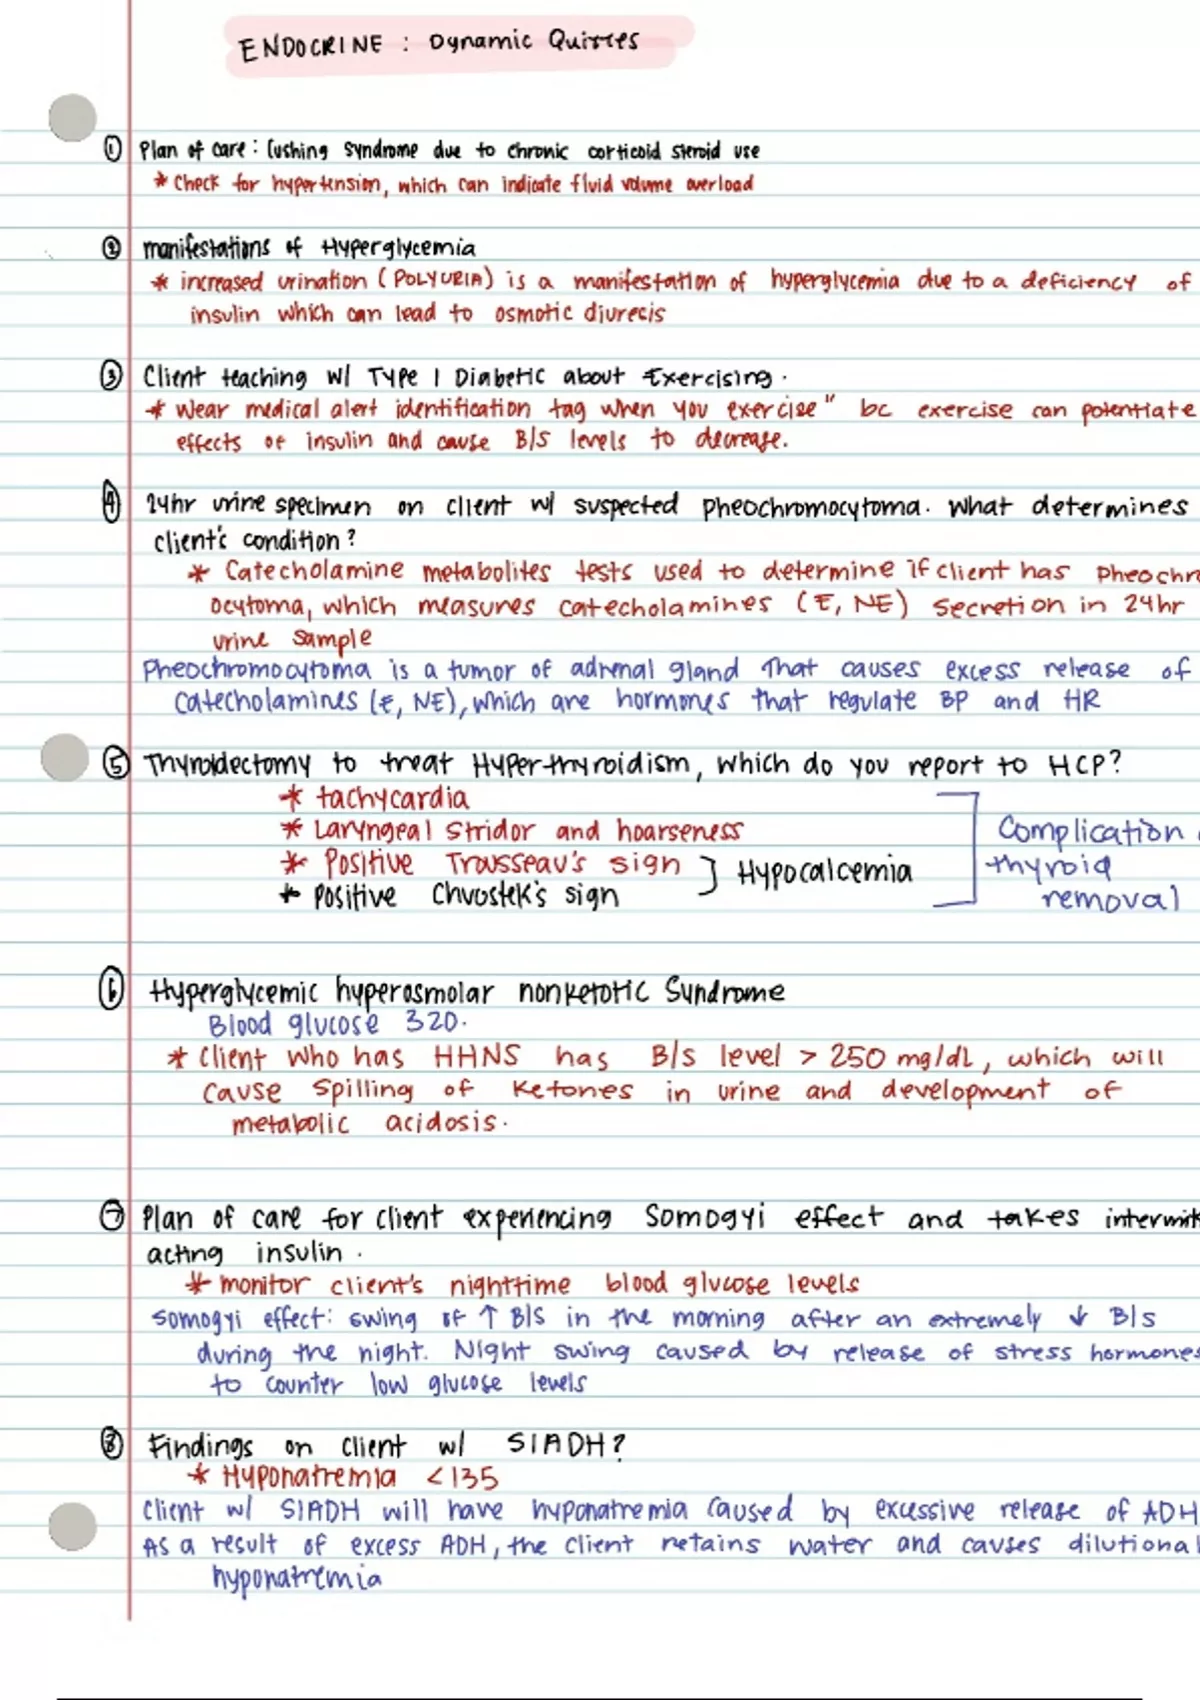 ENDOCRINE : Dynamic Quizzes
① Plan of care : Cushing Syndrome due to chronic corticoid steroid use
* Check for hypertension, which can indicate fluid volume overload
② manifestations of Hyperglycemia
* increased urination (POLYURIA) is a manifestation of hyperglycemia due to a deficiency of
insulin which can lead to osmotic diuresis
③ Client teaching w/ Type 1 Diabetic about Exercising.
* Wear medical alert identification tag when you exercise" bc exercise can potentiate
effects of insulin and cause B/S levels to decrease.
④ 24hr urine specimen on client w/ suspected pheochromocytoma. What determines
client's condition?
* Catecholamine metabolites tests used to determine if client has pheochr
ocytoma, which measures catecholamines (E, NE) secretion in 24hr
urine sample
Pheochromocytoma is a tumor of adrenal gland that causes excess release of
catecholamines (E, NE), which are hormones that regulate BP and HR
⑤ Thyroidectomy to treat Hyperthyroidism, which do you report to HCP?
* tachycardia
* Laryngeal stridor and hoarseness
* Positive Trousseau's sign
* positive Chvostek's sign
Hypocalcemia
Complication
thyroid
removal
⑥ Hyperglycemic hyperosmolar nonketotic Syndrome
Blood glucose 320.
* Client who has HHNS has B/S level > 250 mg/dL, which will
cause spilling of ketones in urine and development of
metabolic acidosis.
⑦ Plan of care for client experiencing Somogyi effect and takes intermit
acting insulin.
* monitor client's nighttime blood glucose levels
somogyi effect: swing of ↑ B/S in the morning after an extremely ↓ B/S
during the night. Night swing caused by release of stress hormones
to counter low glucose levels
⑧ Findings on client w/ SIADH?
* Hyponatremia <135
Client w/ SIADH will have hyponatremia caused by excessive release of ADH
As a result of excess ADH, the client retains water and causes dilutional
hyponatremia